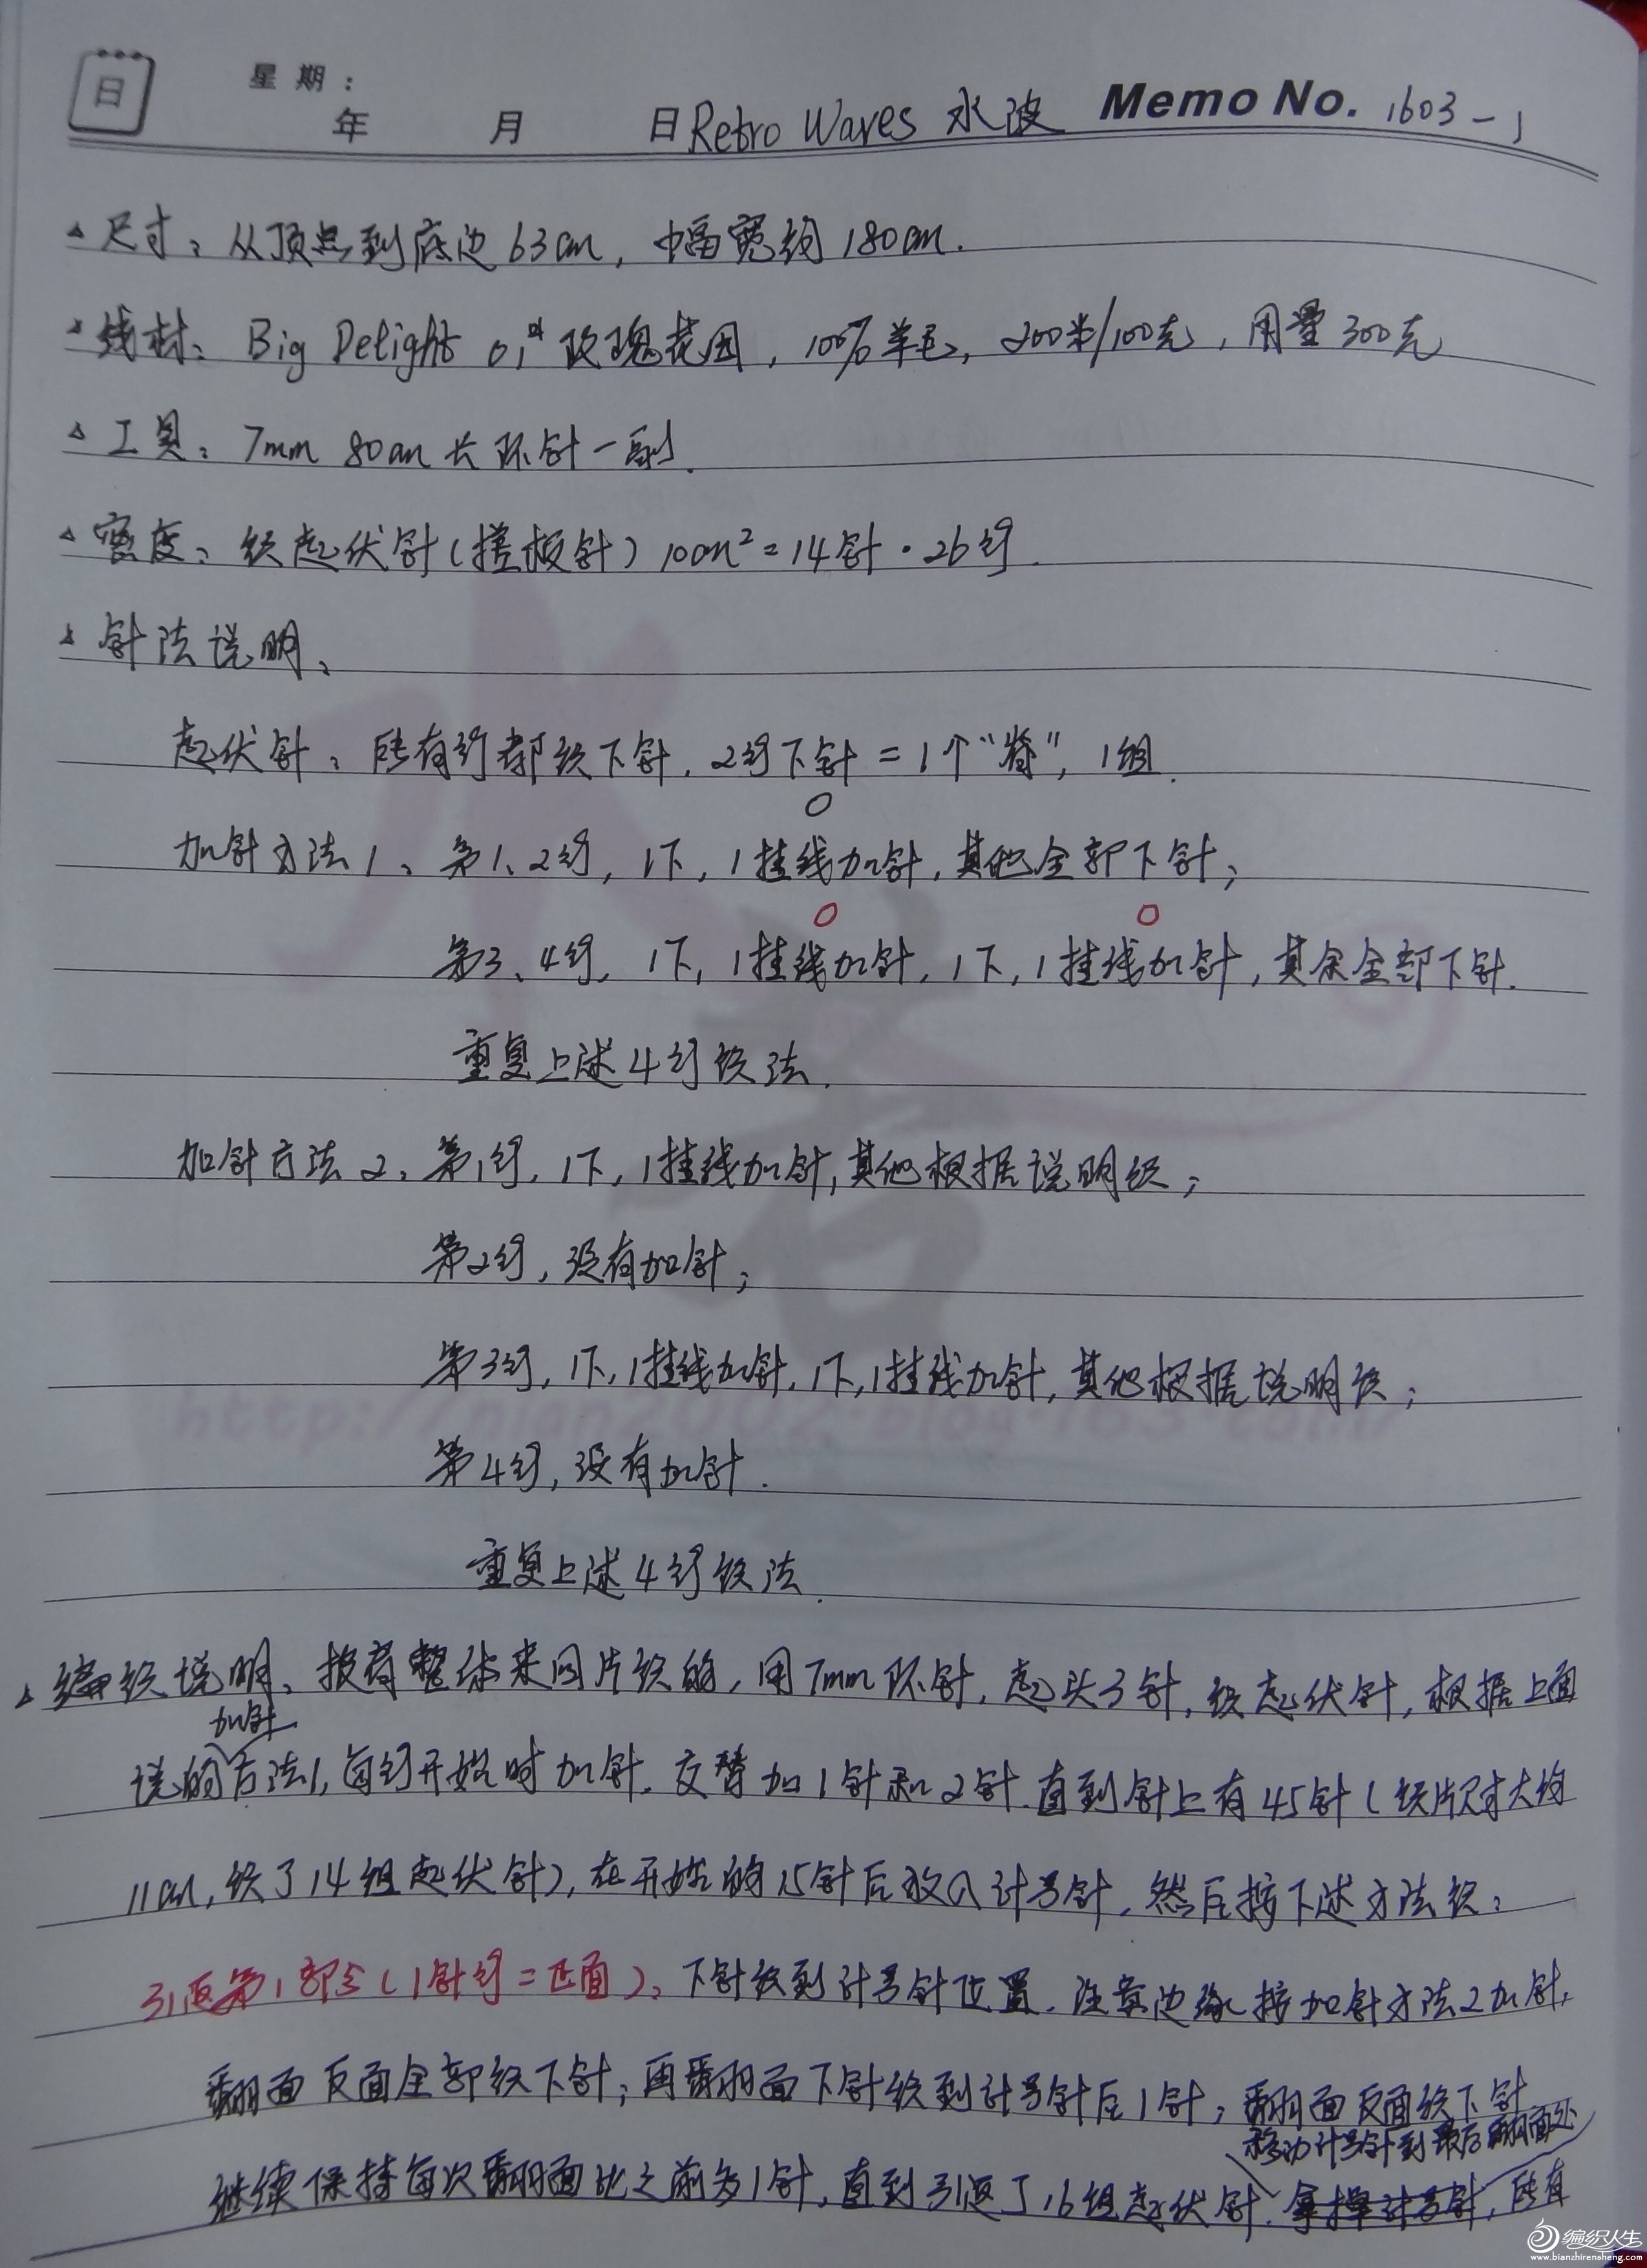 日 星期：
年 月 日 Retro Waves 水波 Memo No. 1603-1
△尺寸：从顶点到底边63cm，幅宽约180cm.
△线材：Big Delight 01# 玫瑰花园，100%羊毛，200米/100克，用量300克
△工具：7mm 80cm长环针一副.
△密度：织起伏针(搓板针) 10cm²=14针·26行.
△针法说明：
起伏针：所有行都织下针，2行下针=1个“脊”，1组.
○
加针方法1：第1、2行，1下，1挂线加针，其他全部下针；
○ ○
第3、4行，1下，1挂线加针，1下，1挂线加针，其余全部下针.
重复上述4行织法.
加针方法2：第1行，1下，1挂线加针，其他根据说明织；
第2行，没有加针；
第3行，1下，1挂线加针，1下，1挂线加针，其他根据说明织；
http://nian2002.blog.163.com/
第4行，没有加针.
重复上述4行织法.
△编织说明：披肩整体来回片织的，用7mm环针，起头3针，织起伏针，根据上面
加针
说的方法1，每行开始时加针，交替加1针和2针.直到针上有45针(织片尺寸大约
11cm，织了14组起伏针)，在开始的15针后放入计号针，然后按下述方法织：
引返第1部分(1针行=正面)：下针织到计号针位置，注意边缘按加针方法2加针，
翻面反面全部织下针；再翻面下针织到计号针后1针，翻面反面织下针
移动计号针到最后翻面处
继续保持每次翻面比之前多1针，直到引返了16组起伏针.拿掉计号针，所有
编织人生
www.bianzhirensheng.com
水